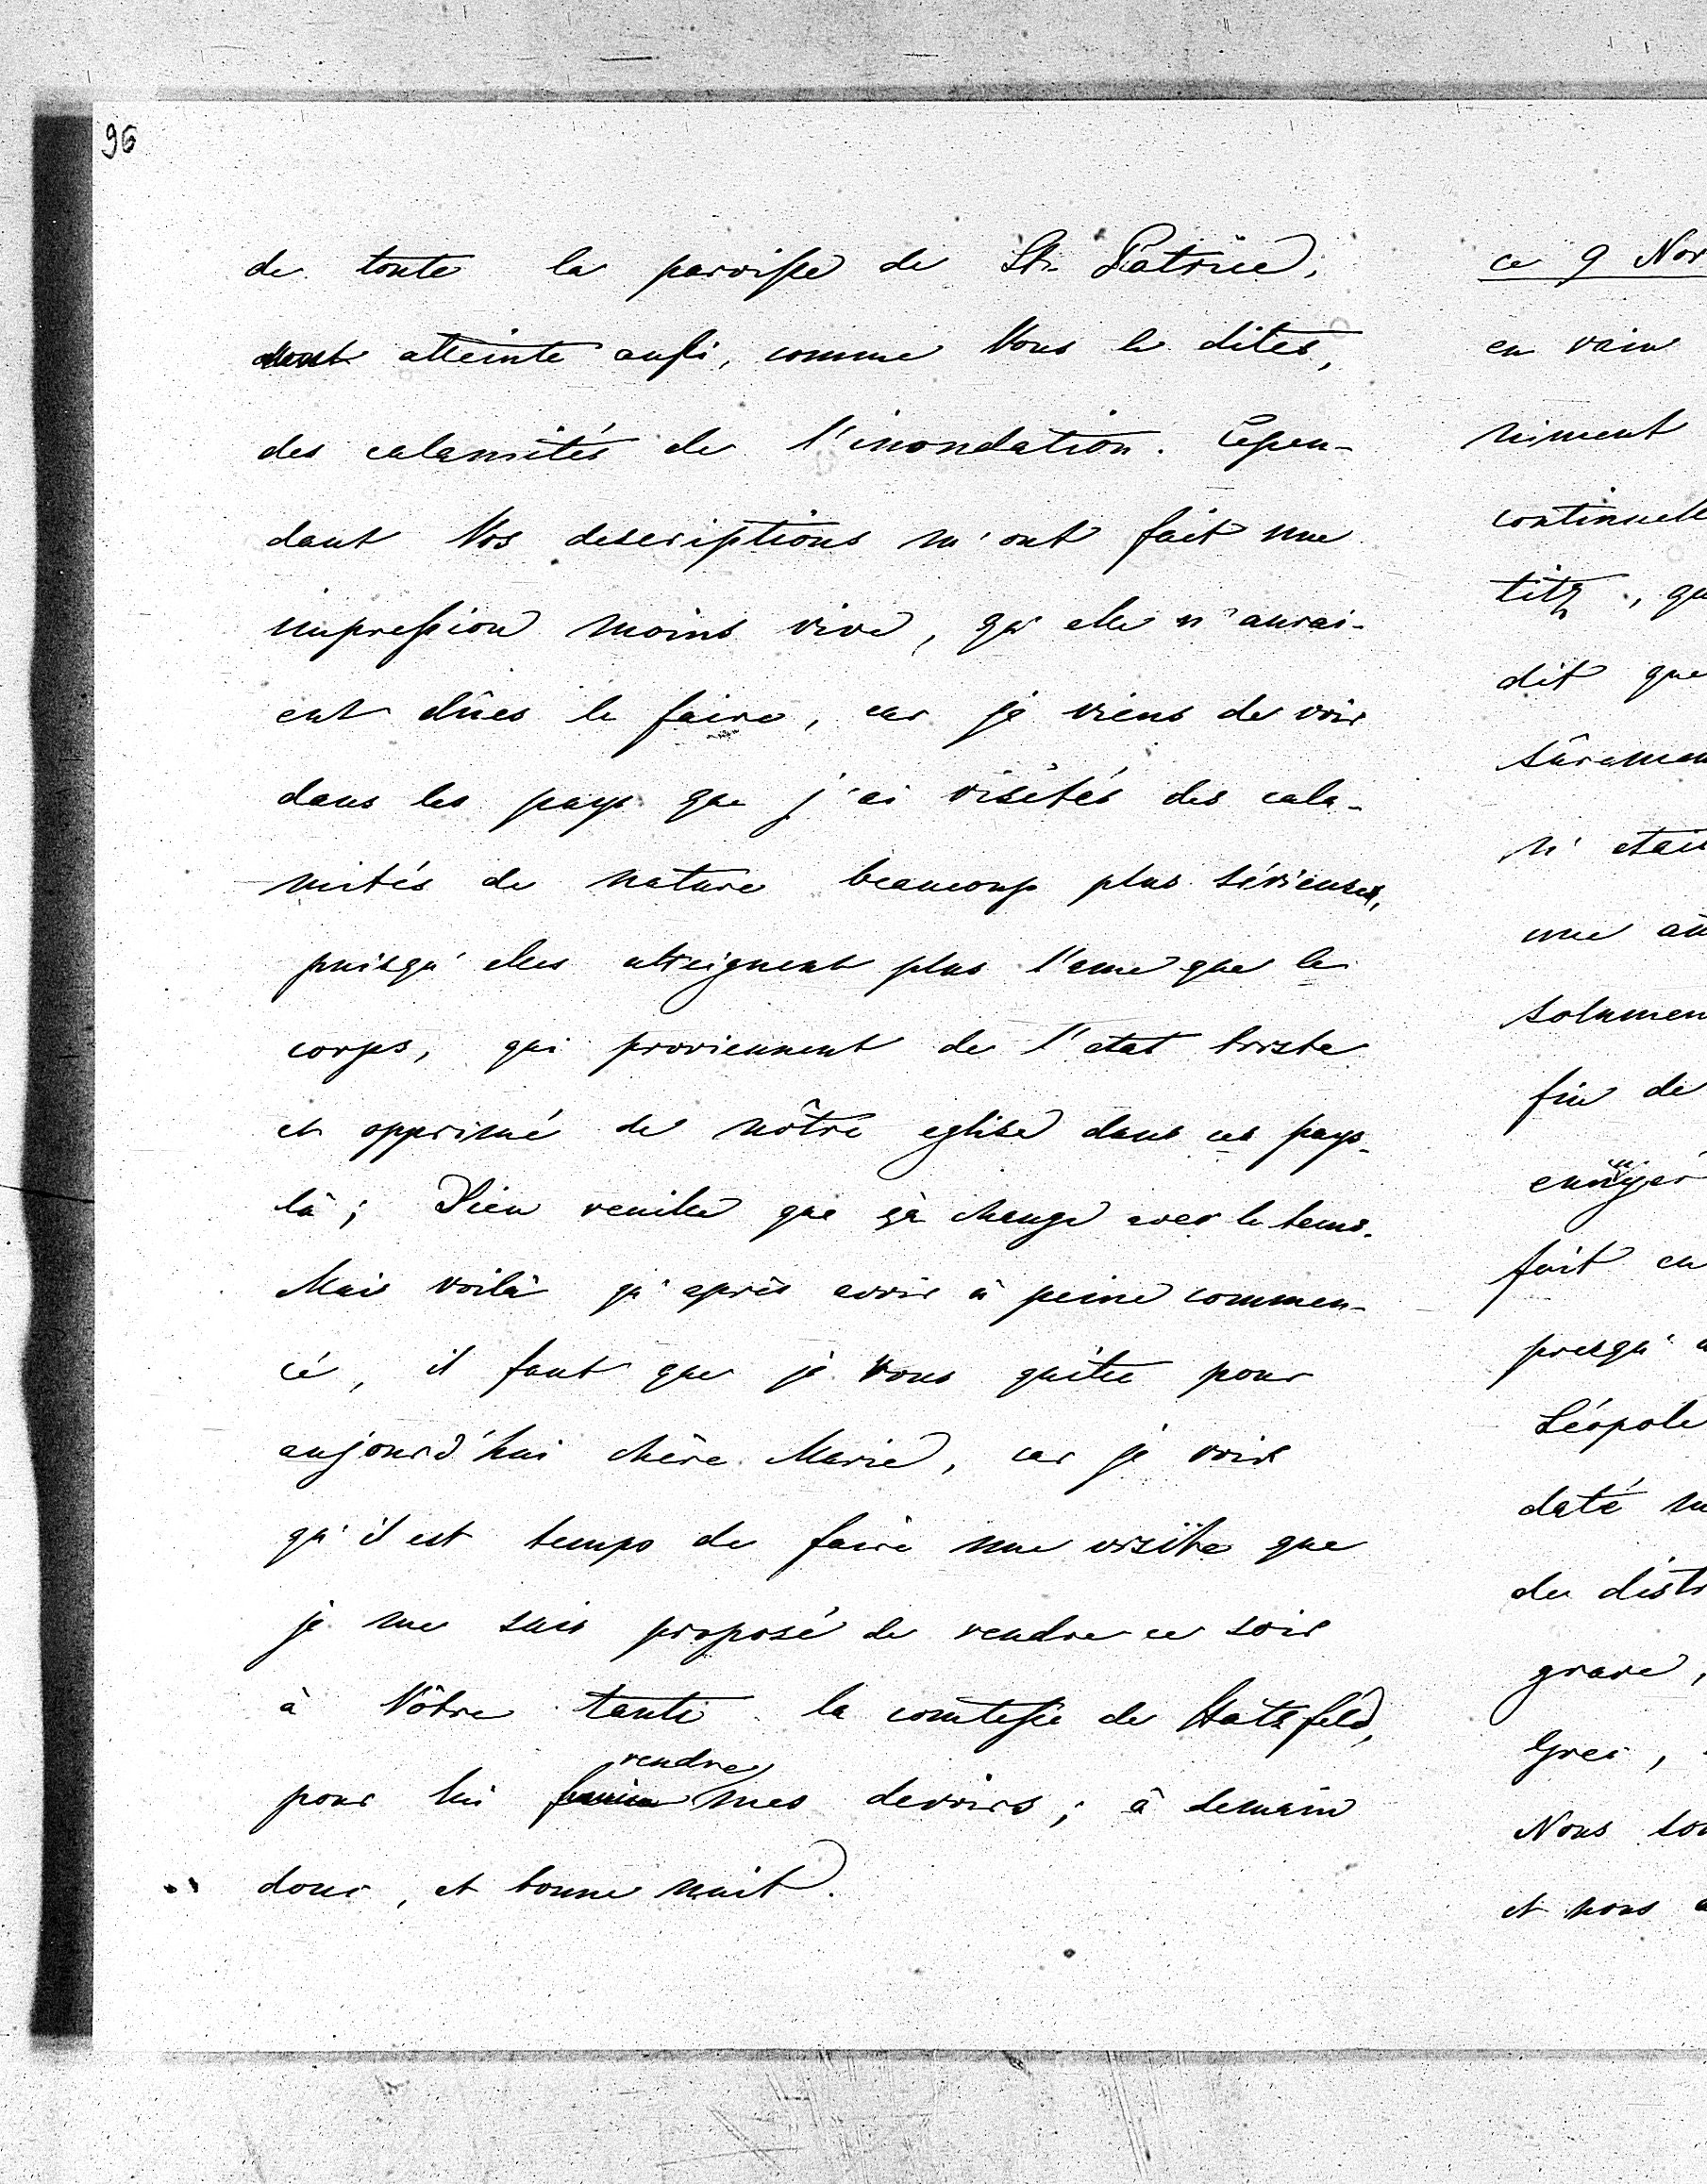 96
de toute la paroisse de St. Patrice,
atteinte aussi, comme Vous le dites,
des calamités de l'inondation. Cepen-
dant Vos descriptions m'ont fait une
impression moins vive, qu'elle n'aurai-
ent dûes le faire, car je viens de voir
dans les pays que j'ai visités des cala-
mités de nature beaucoup plus sérieuses,
puisqu'elles atteignent plus l'ame que le
corps, qui proviennent de l'etat triste
et opprimé de nôtre eglise dans ces pays-
là; Dieu veuille que çà change avec le tems.
Mais voilà qu'après avoir à peine commen-
cé, il faut que je Vous quitte pour
aujourd'hui chère Marie, car je vois
qu'il est temps de faire une visite que
je me suis proposé de rendre ce soir
à Vôtre tante la comtesse de Hatzfeld,
rendre
pour lui faire mes devoirs; à demain
donc, et bonne nuit.
ce 9 Nov
en vain
niment
continuelle
titz, qu
dit que
sûremen
n'etait
une au
solumen
fin de
fait en
presqu'
Léopole
daté
du distr
grave,
Grec,
Nous so
et nous